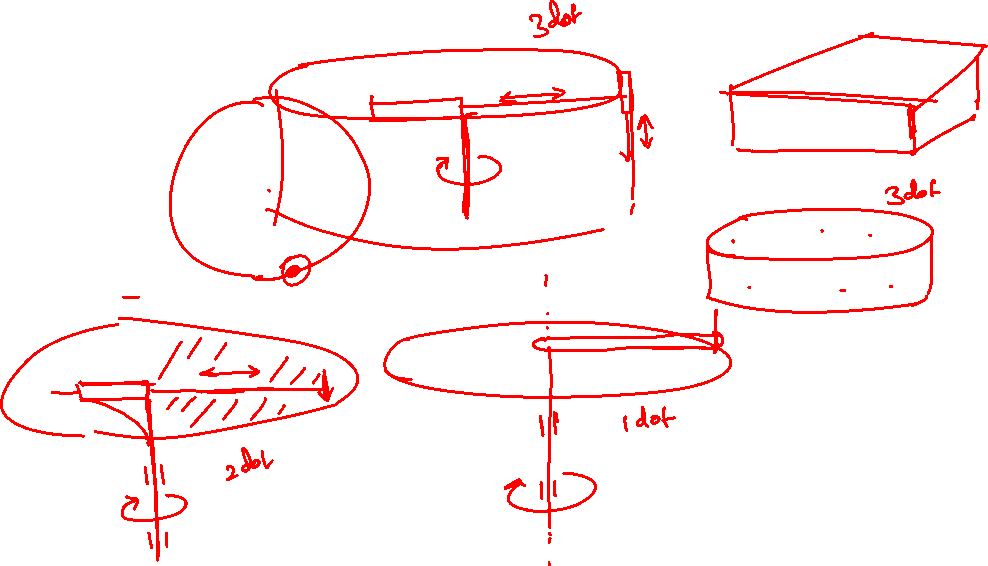 3dof
3dof
1dof
2dof